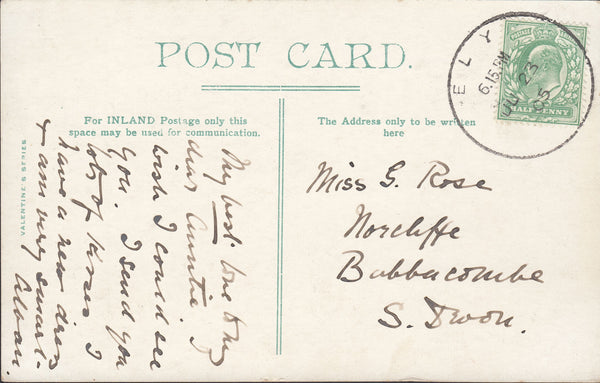 POST CARD.
For INLAND Postage only this
space may be used for communication.
The Address only to be written
here
VALENTINE'S SERIES
ELY
6.15 PM
JU 23
05
POSTAGE
HALFPENNY
My best love to my
dear Auntie. I
wish I could see
you. I send you
lots of kisses I
have a new dress
& am very smart.
Miss G. Rose
Norcliffe
Babbacombe
S. Devon.